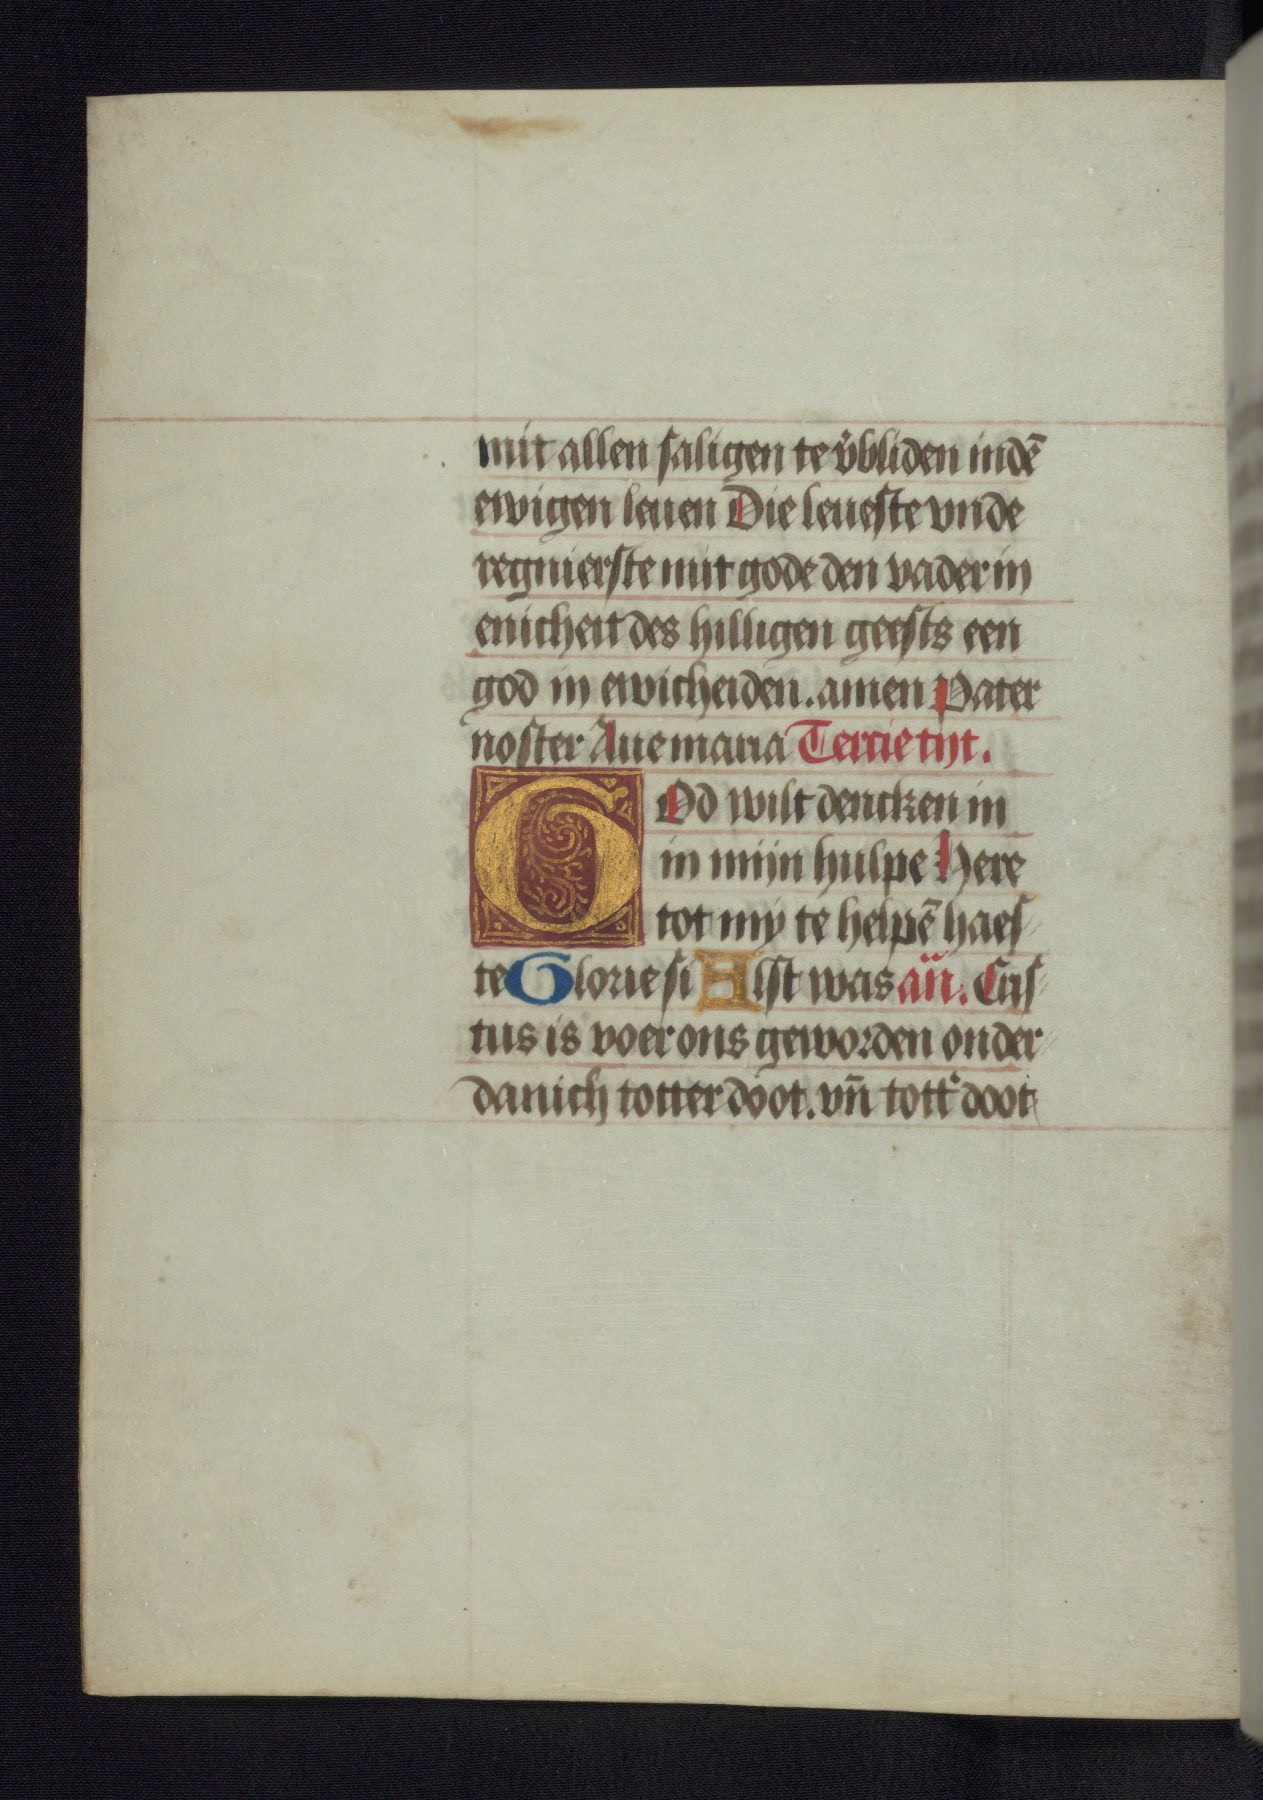 mit allen saligen te v̉bliden indē
ewigen leuen Die leueste vnde
regnierste mit gode den vader in
enicheit des hilligen geests een
god in ewicheiden. amen Pater
noster Aue maria Tercie tijt.
GOd wilt dencken in
in mijn hulpe Here
tot my te helpē haes-
te Glorie si Alst was añ. Cris-
tus is voer ons geworden onder-
danich totter doot. vn̄ tott' doot